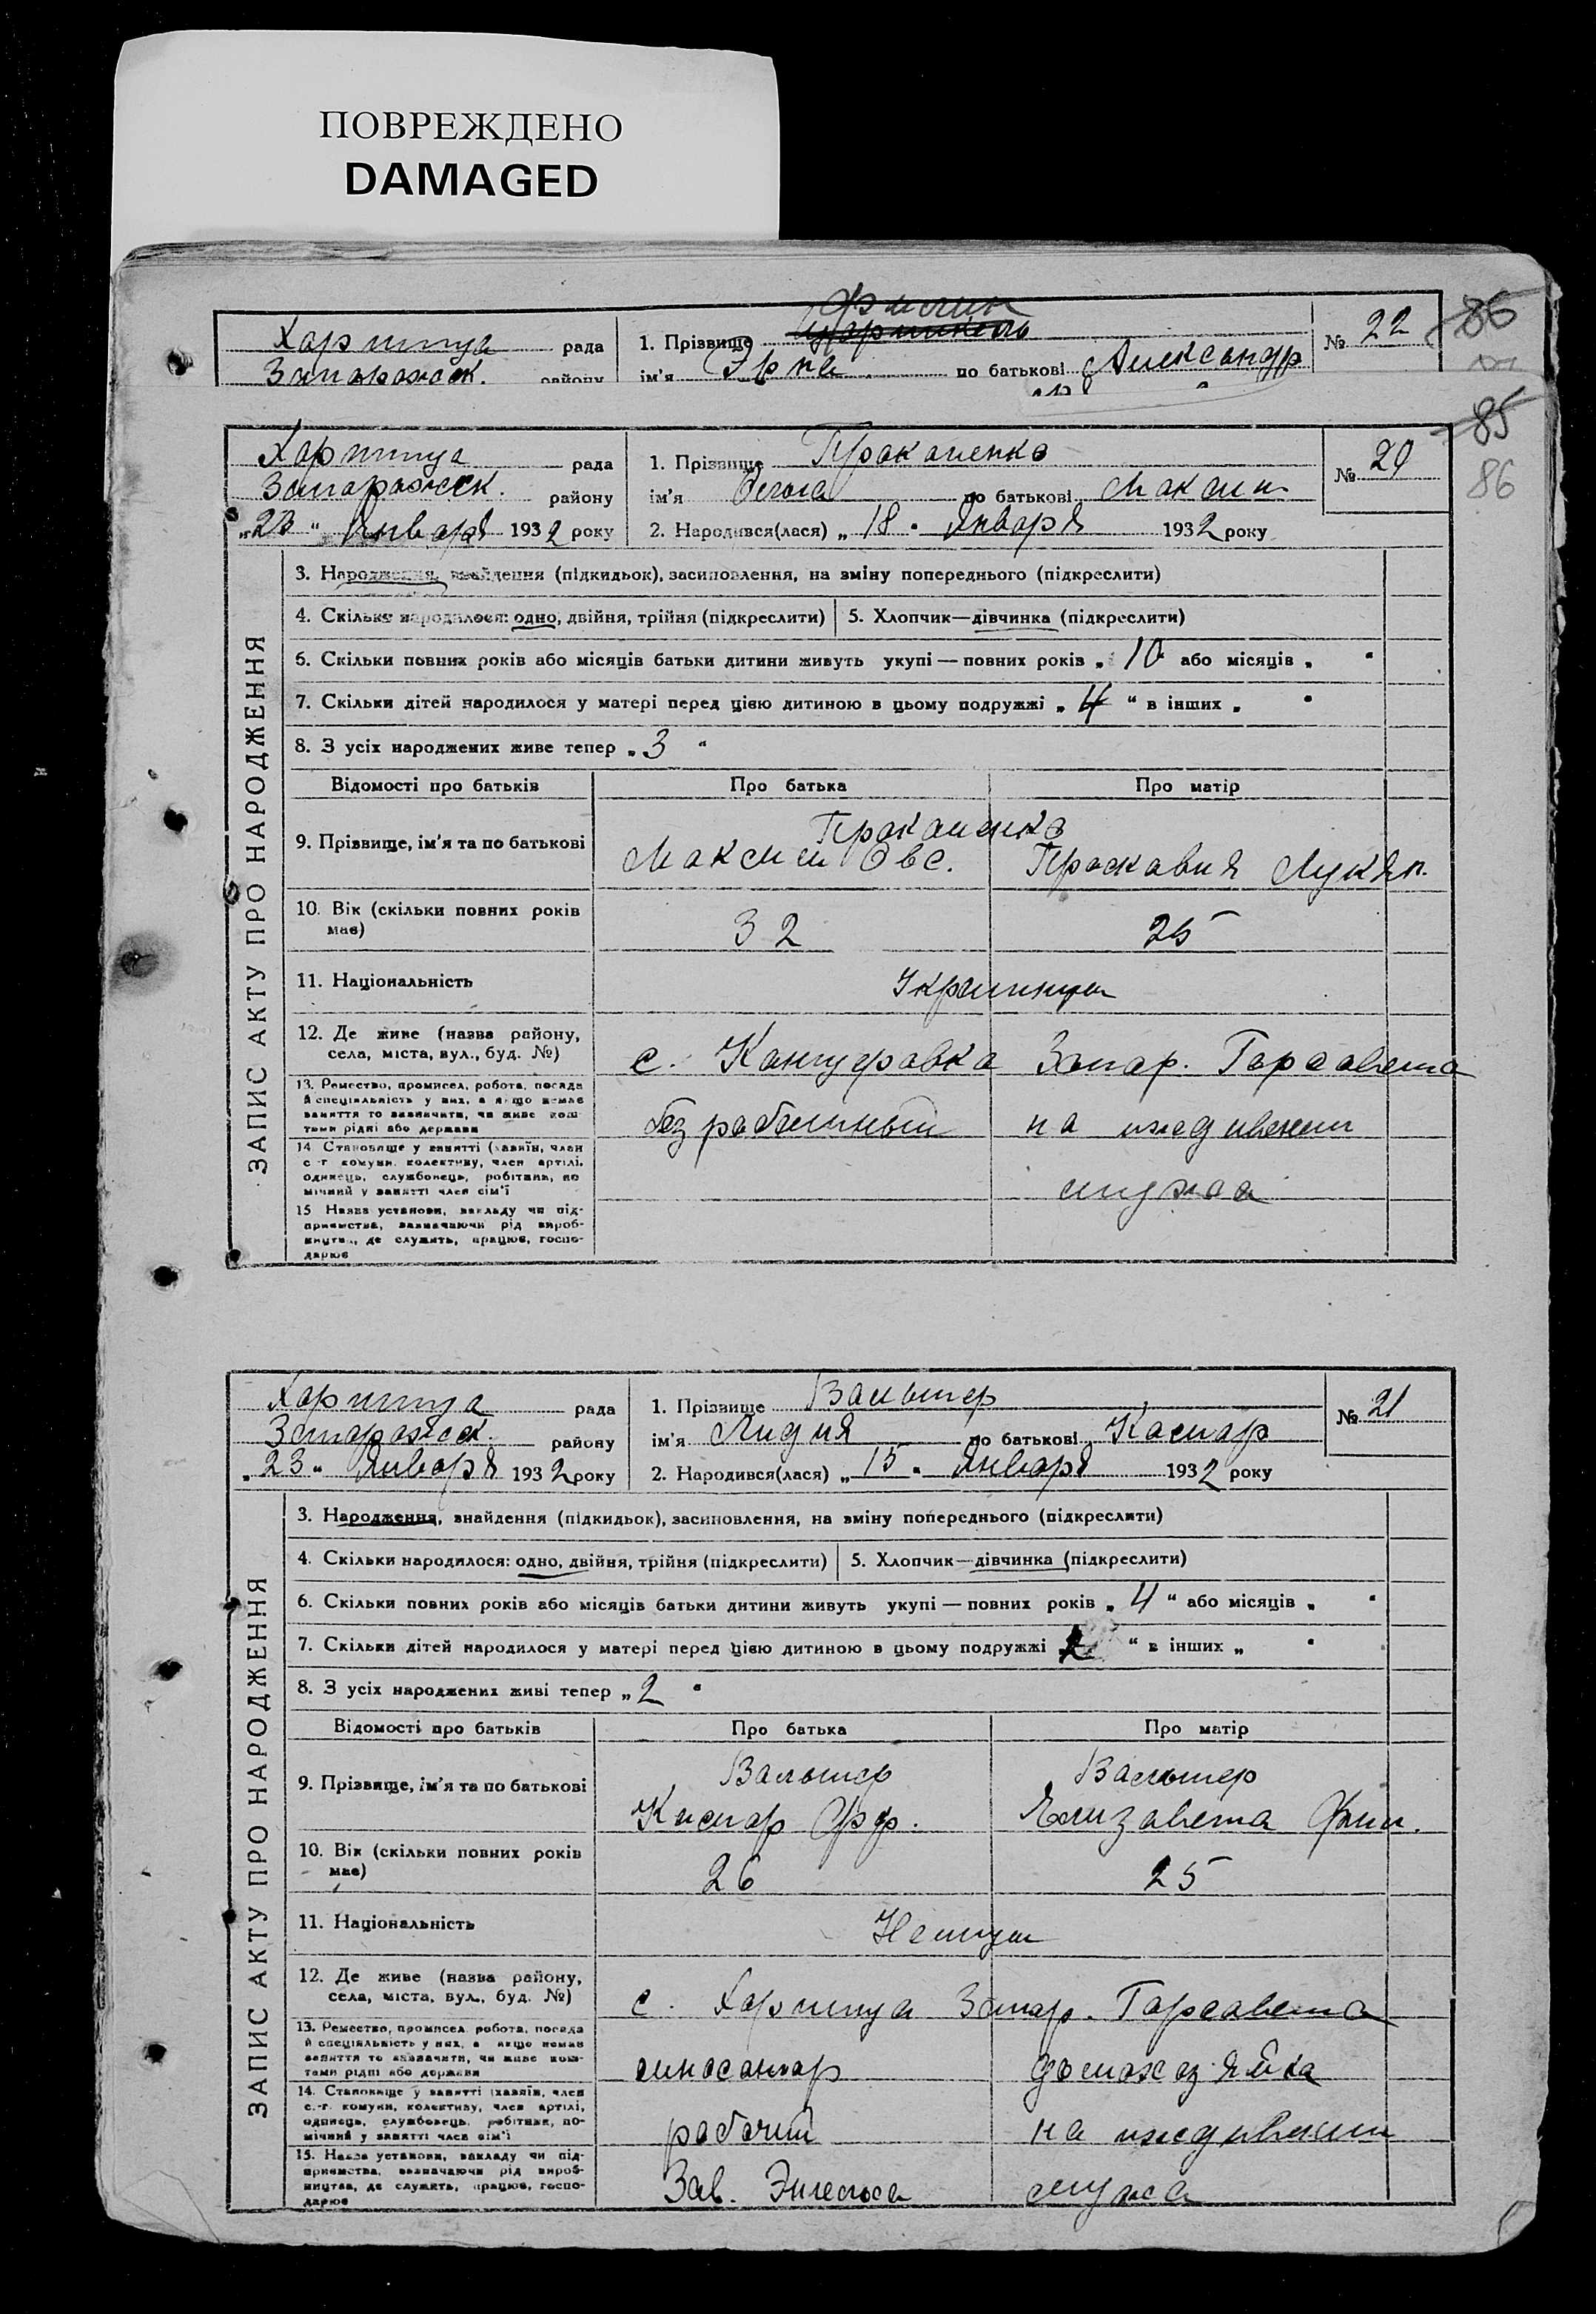 ПОВРЕЖДЕНО
DAMAGED
Хортица рада 1. Прізвище № 22 86
Запорожск. району ім'я Эрна по батькові Александр
85
Хортица рада 1. Прізвище Прокопенко № 20
Запорожск. району ім'я по батькові Максим 86
„23“ Января 1932 року 2. Народився(лася) „18“ Января 1932 року
ЗАПИС АКТУ ПРО НАРОДЖЕННЯ
3. Народження, знайдення (підкидьок), засиновлення, на зміну попереднього (підкреслити)
4. Скільки народилося: одно, двійня, трійня (підкреслити) 5. Хлопчик—дівчинка (підкреслити)
6. Скільки повних років або місяців батьки дитини живуть укупі — повних років „10“ або місяців „ “
7. Скільки дітей народилося у матері перед цією дитиною в цьому подружжі „4“ в інших „ “
8. З усіх народжених живе тепер „3“
Відомості про батьків Про батька Про матір
9. Прізвище, ім'я та по батькові Прокопенко
Максим Овс. Просковия Лукян.
10. Вік (скільки повних років
має) 32 25
11. Національність Украинцы
12. Де живе (назва району,
села, міста, вул., буд. №) с. Канцеровка Запор. Горсовета
13. Ремество, промисел, робота, посада
й спеціяльність у них, а якщо немає
заняття то зазначити, чи живе кош-
тами рідні або держави безработный на иждивении
14. Становище у занятті (хазяїн, член
с.-г. комуни, колективу, член артілі,
одинець, службовець, робітник, по-
мічний у занятті член сім'ї мужа
15. Назва установи, закладу чи під-
приємства, зазначаючи рід вироб-
ництва, де служить, працює, госпо-
дарює
Хортица рада 1. Прізвище Вальтер № 21
Запорожск. району ім'я Лидия по батькові Каспар
„23“ Января 1932 року 2. Народився(лася) „15“ Января 1932 року
ЗАПИС АКТУ ПРО НАРОДЖЕННЯ
3. Народження, знайдення (підкидьок), засиновлення, на зміну попереднього (підкреслити)
4. Скільки народилося: одно, двійня, трійня (підкреслити) 5. Хлопчик—дівчинка (підкреслити)
6. Скільки повних років або місяців батьки дитини живуть укупі — повних років „4“ або місяців „ “
7. Скільки дітей народилося у матері перед цією дитиною в цьому подружжі „ “ в інших „ “
8. З усіх народжених живі тепер „2“
Відомості про батьків Про батька Про матір
9. Прізвище, ім'я та по батькові Вальтер Вальтер
Каспар Фр. Елизавета Фил.
10. Вік (скільки повних років
має) 26 25
11. Національність Немцы
12. Де живе (назва району,
села, міста, вул., буд. №) с. Хортица Запор. Горсовета
13. Ремество, промисел, робота, посада
й спеціяльність у них, а якщо немає
заняття то зазначити, чи живе кош-
тами рідні або держави слюсарь домохозяйка
14. Становище у занятті (хазяїн, член
с.-г. комуни, колективу, член артілі,
одинець, службовець, робітник, по-
мічний у занятті член сім'ї рабочий на иждивении
15. Назва установи, закладу чи під-
приємства, зазначаючи рід вироб-
ництва, де служить, працює, госпо-
дарює Зав. Энгельса мужа